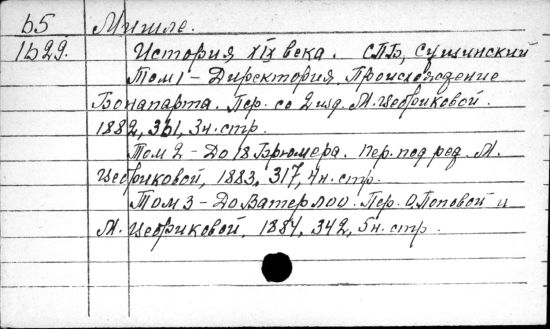 b5 Мишле.
1b29. История XIX века. СПБ, Сущинский
Том 1 - Директория. Происхождение
Бонапарта. Пер. со 2 изд. М. Цебриковой.
1882, 361, 3 н. стр.
Том 2 - До 18 Брюмера. Пер. под ред. М.
Цебриковой, 1883, 317, 4 н. стр.
Том 3 - До Ватерлоо. Пер. О. Поповой и
М. Цебриковой. 1884, 342, 5 н. стр.